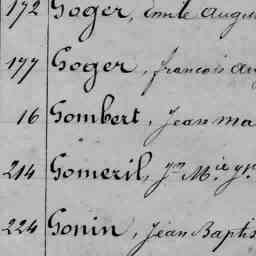 172 Goger, Emile Augu
177 Goger, françois Au
16 Gombert, Jean Ma
214 Gomeril, Jn Mie
224 Gonin, Jean Baptis